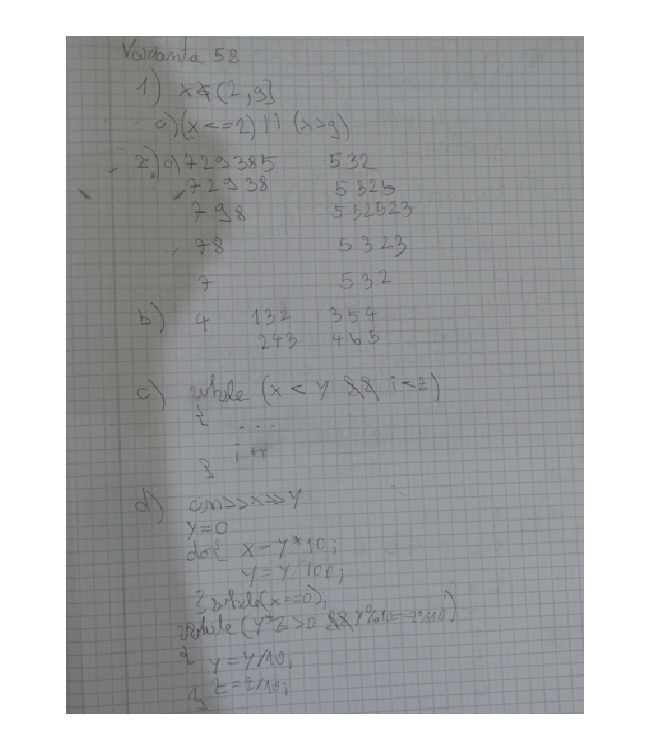 Varianta 58
1) x∉(2,9]
a) (x<=2) || (x>9)
2) a) 729385 532
72938 5323
798 532523
78 5323
7 532
b) 4 132 354
243 465
c) while (x < y && i<z)
{ ...
i++
}
d) cin>>x>>y
y=0
do{ x=y*10;
y=y/100;
} while(x==0);
while (y*z>0 && y%10==z%10)
{ y=y/10;
z=z/10;
}